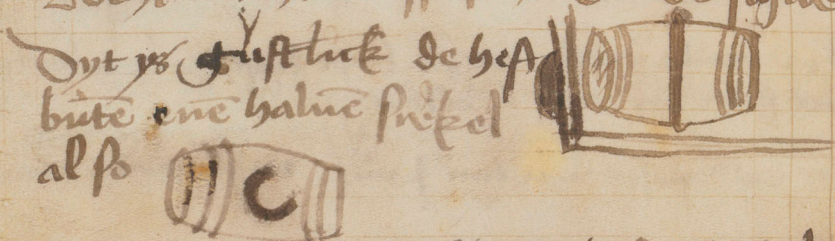 Dyt ys gustlick de heft
bute ene halue sirkel
also